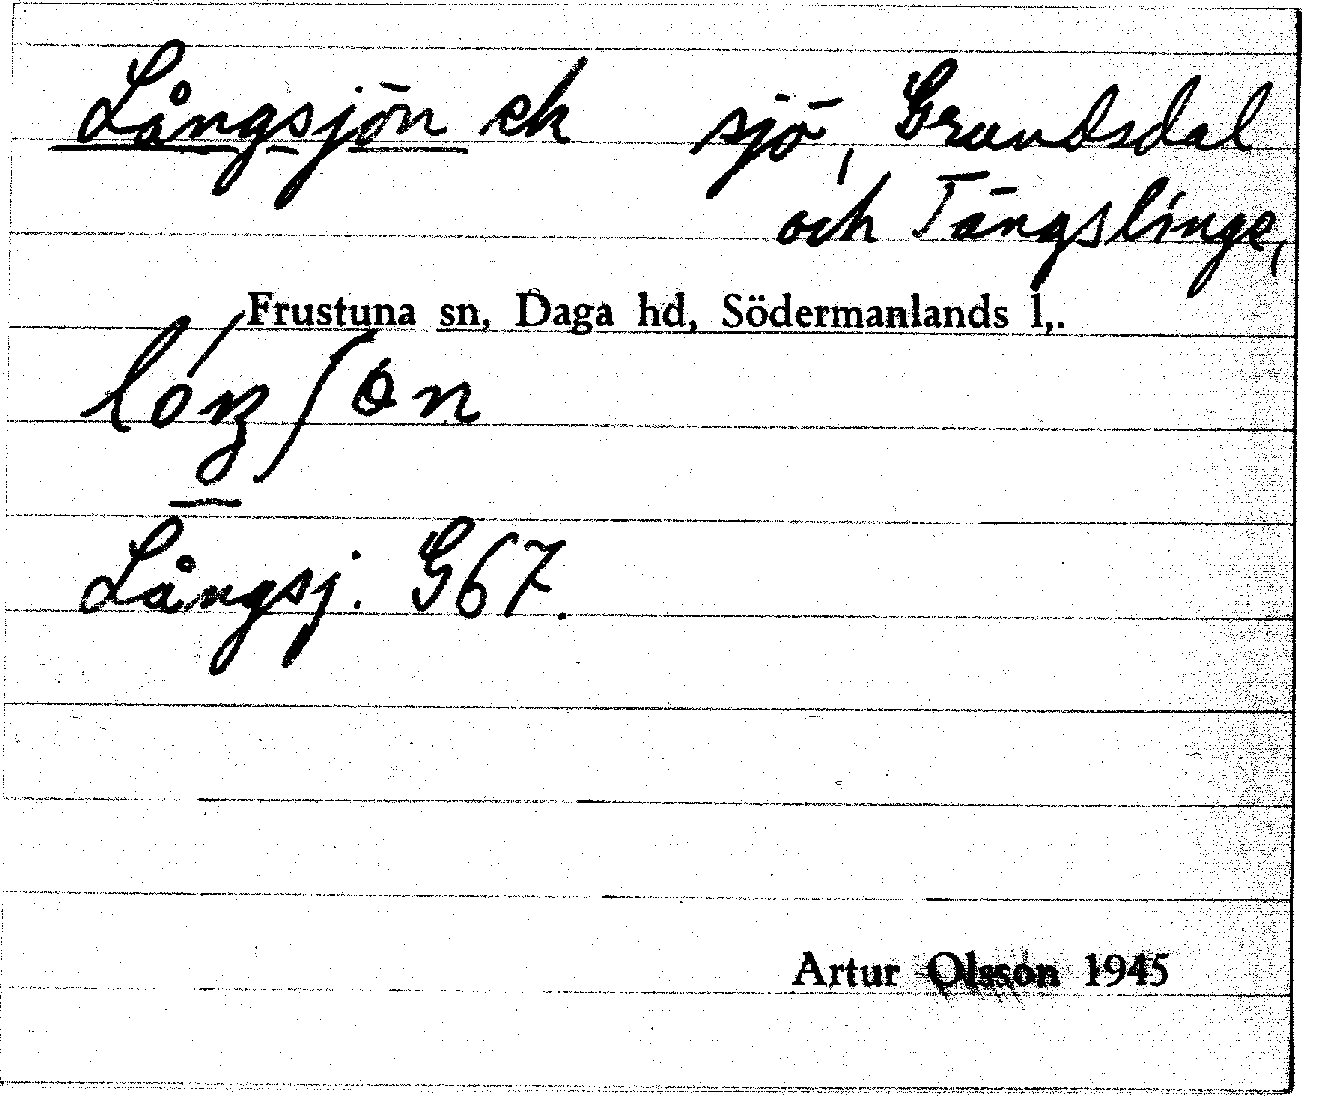 Långsjön ek sjö, Grandsdal
och Tängslinge,
Frustuna sn, Daga hd, Södermanlands l,.
Långsj. G67.
Artur Olsson 1945